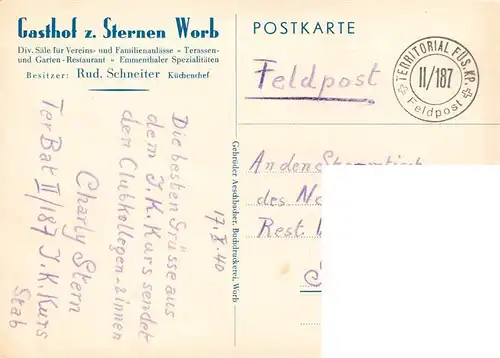 Gasthof z. Sternen Worb
Div. Säle für Vereins- und Familienanlässe - Terassen-
und Garten-Restaurant - Emmenthaler Spezialitäten
Besitzer: Rud. Schneiter Küchenchef
Die besten Grüsse aus
dem J. K. Kurs sendet
den Clubkollegen & innen
Charly Stern
Ter Bat II/187 J. K. Kurs
Stab
17. X. 40
Gebrüder Aeschbacher, Buchdruckerei, Worb
POSTKARTE
Feldpost
TERRITORIAL FÜS. KP.
II/187
Feldpost
An den Stammtisch
des
Rest.